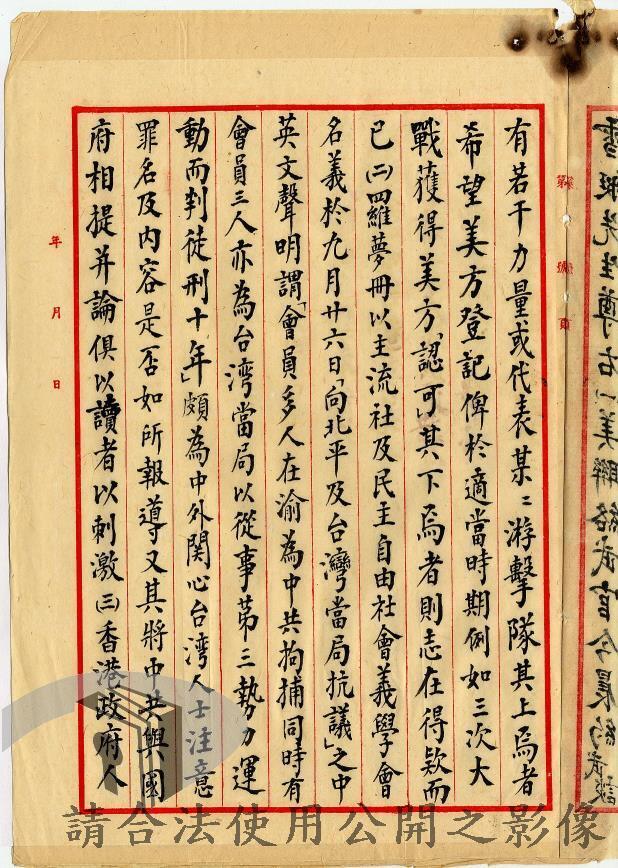 雪艇先生尊右㈠美聯絡武官今晨約武談
第 號 頁
有若干力量或代表某〻游擊隊其上焉者
希望美方登記俾於適當時期例如三次大
戰獲得美方「認可」其下焉者則志在得款而
已㈡羅夢冊以主流社及民主自由社會義學會
名義於九月廿六日「向北平及台灣當局抗議」之中
英文聲明謂「會員多人在渝為中共拘捕同時有
會員三人亦為台灣當局以從事第三勢力運
動而判徒刑十年」頗為中外関心台湾人士注意
罪名及內容是否如所報導又其將中共與國
府相提并論俱以讀者以刺激㈢香港政府人
年 月 日
請合法使用公開之影像